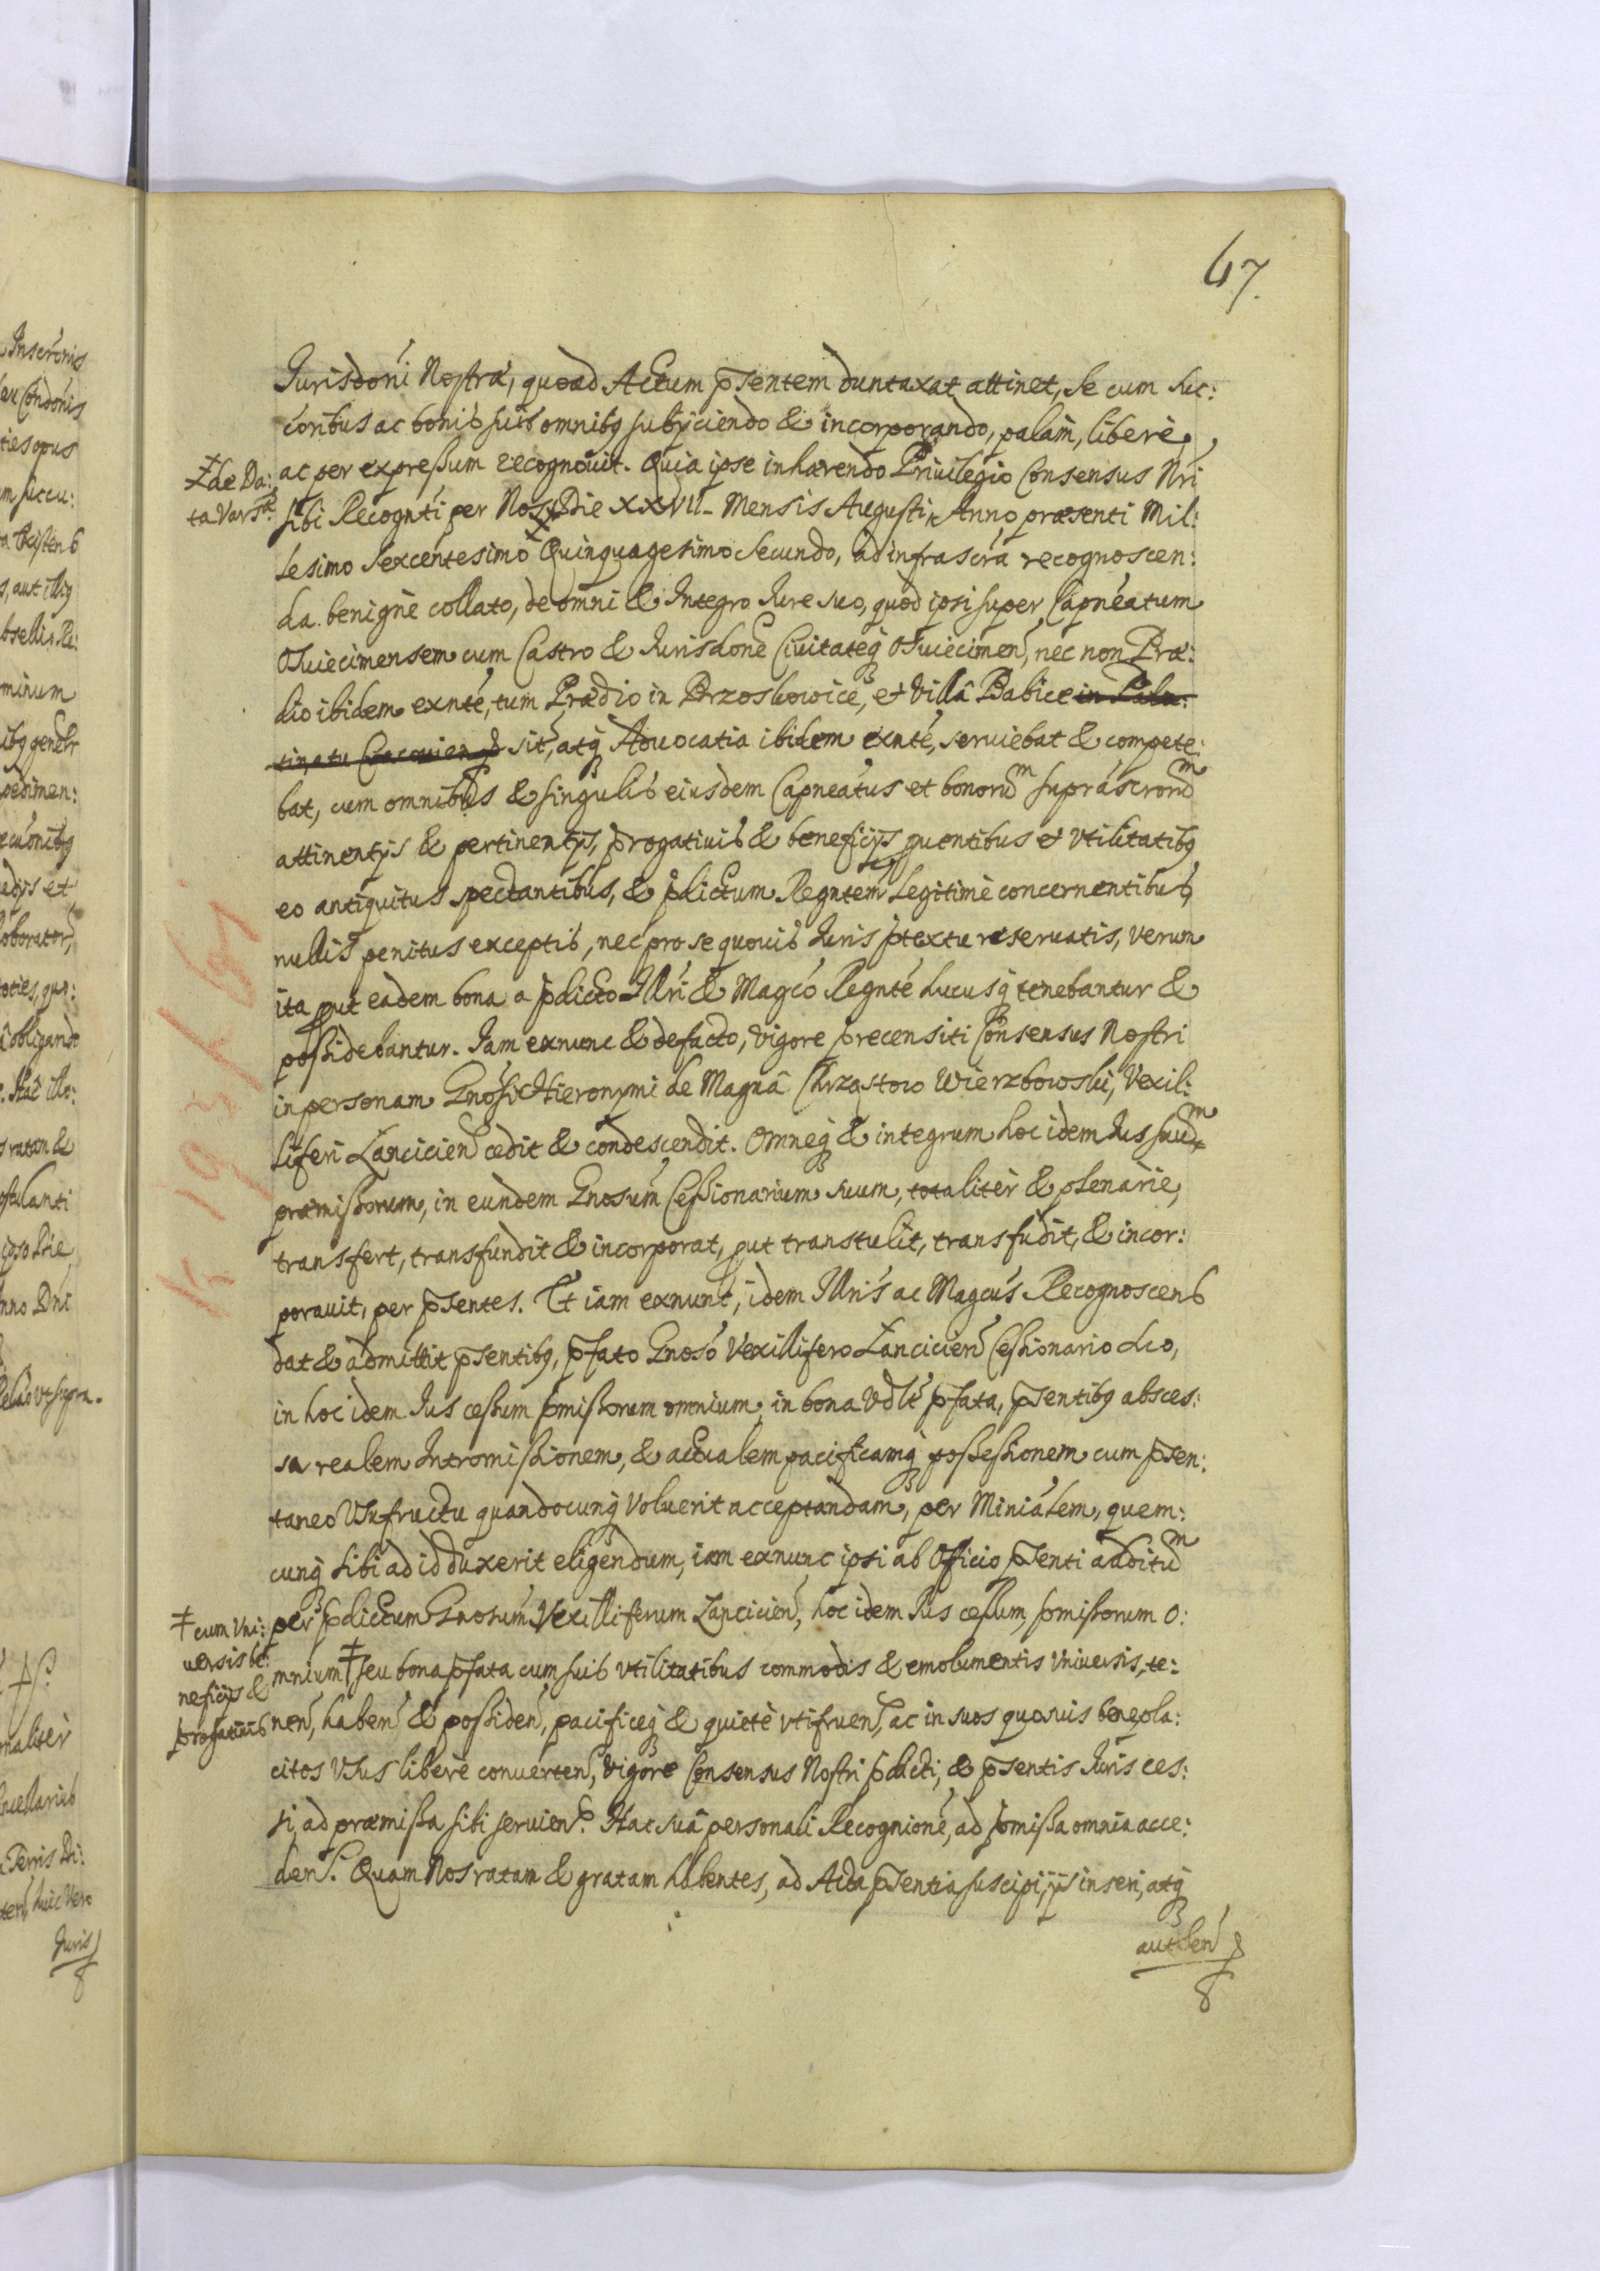 67.
Jurisdoni Nostræ, quoad Actum pntem duntaxat attinet, Se cum Suc:
coribus ac bonis suis omnibq subyciendo & incorporando, palam, libere,
ac per expressum recognouit. Quia ipse inhærendo Priuilegio Consensus Nri
‡ de Da:
ta Vars:
sibi Recognti per Nos ‡ Die XXVII Mensis Augusti Anno præsenti Mil:
lesimo Sexcentesimo Quinquagesimo Secundo, ad infrascra recognoscen:
da benigne collato, de omni & Integro Jure suo, quod ipsi super Capneatum
Osuiecimensem cum Castro & Jurisdone Ciuitateq Osuiecimen, nec non Præ:
dio ibidem exnte, tum Prædio in Brzoskowice, et Villa Babice in Pala:
tinatu Cracouien sit, atq Aduocatia ibidem exnte, seruiebat & compete:
bat, cum omnibus & singulis eiusdem Capneatus et bonorum suprascrorum
attinentys & pertinentys, progatiuis & beneficys, quentibus et vtilitatibq
eo antiquitus spectantibus, & pdictum Regntem Legitime concernentibus,
nullis penitus exceptis, nec pro se quouis Juris ptextu reseruatis, verum
ita put eadem bona a pdicto Illri & Magco Regnte hucusq tenebantur &
possidebantur. Jam exnunc & defacto, vigore precensiti Consensus Nostri
in personam Gnosi Hieronymi de Magna Chrząstow Wierzbowski, Vexil:
liferi Lancicien cedit & condescendit. Omneq & integrum hoc idem Jus suum
præmissorum, in eundem Gnosum Cessionarium suum, totaliter & plenarie,
transfert, transfundit & incorporat, put transtulit, transfudit, & incor:
porauit, per pntes. Et iam exnunc, idem Illris ac Magcus Recognoscens
dat & admittit pntibq, pfato Gnoso Vexillifero Lancicien Cessionario suo,
in hoc idem Jus cessum pmissorum omnium, in bona vdlt pfata, pntibq absces:
sa realem Intromissionem, & actualem pacificamq possessionem cum pnsen:
taneo Vsufructu quandocunq voluerit acceptandam, per Minialem, quem:
cunq sibi ad id duxerit eligendum, iam exnunc ipsi ab Officio pnti additum
per pdictum Gnosum Vexilliferum Lancicien, hoc idem Jus cessum, pmissorum o:
‡ cum Vni:
uersis be:
neficys &
progatiuis
mnium ‡ seu bona pfata cum suis vtilitatibus commodis & emolumentis Vniuersis, te:
nen, haben & possiden, pacificeq & quiete vtifruen, ac in suos quosuis benepla:
citos Vsus libere conuerten, vigore Consensus Nostri pdicti, & pntis Juris ces:
si, ad præmissa sibi seruien. Hac sua personali Recognione, ad pmissa omnia acce:
den. Quam Nos ratam & gratam habentes, ad Acta pntia suscipi, ys inseri, atq
authen